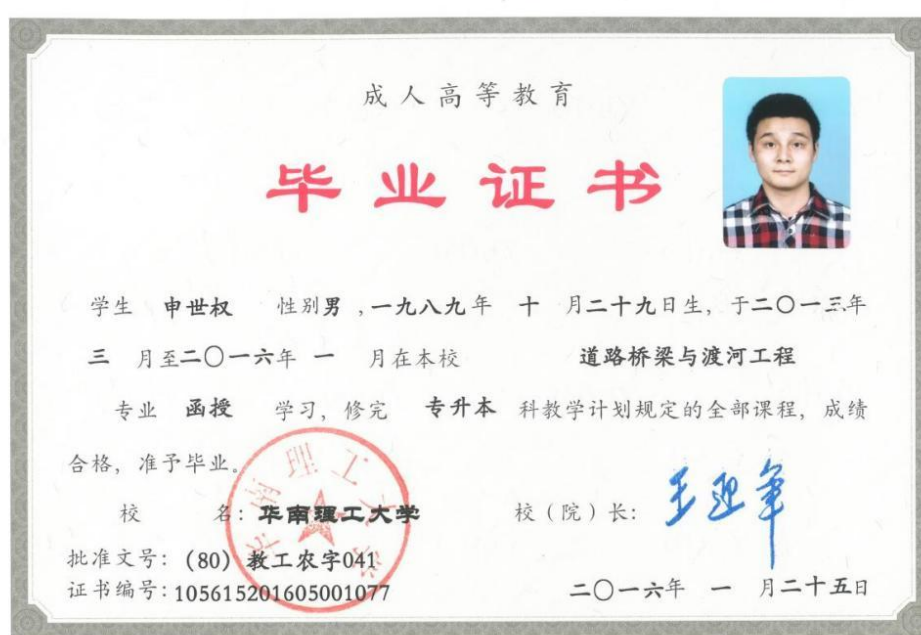 成人高等教育
毕业证书
学生 申世权 性别男,一九八九年 十 月二十九日生, 于二〇一三年
三 月至二〇一六年 一 月在本校 道路桥梁与渡河工程
专业 函授 学习, 修完 专升本 科教学计划规定的全部课程, 成绩
合格, 准予毕业。
校 名: 华南理工大学 校(院)长: 王迎军
批准文号: (80) 教工农字041
证书编号: 105615201605001077 二〇一六年 一 月二十五日
华南理工大学